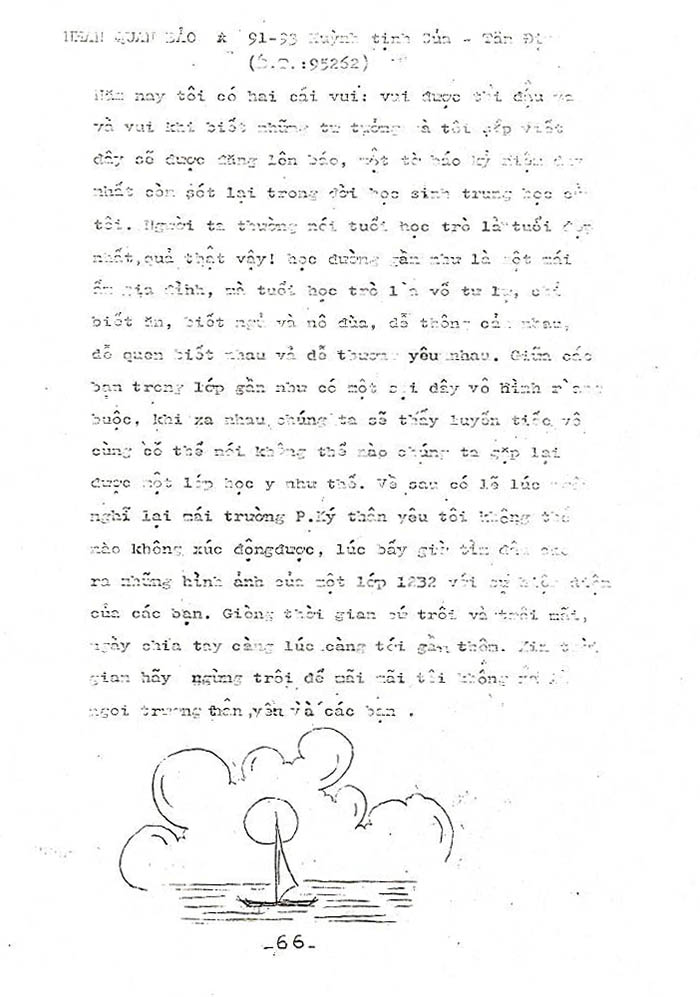 QUAN BẢO * 91-93 Huỳnh tịnh Của - Tân Định
(Đ.T.:95262)
Năm nay tôi có hai cái vui: vui được thi đậu
và vui khi biết những tư tưởng mà tôi góp viết
đây sẽ được đăng lên báo, một tờ báo kỷ niệm duy
nhất còn sót lại trong đời học sinh trung học của
tôi. Người ta thường nói tuổi học trò là tuổi đẹp
nhất,quả thật vậy! học đường gần như là một mái
ấm gia đình, mà tuổi học trò là vô tư lự, chỉ
biết ăn, biết ngủ và nô đùa, dễ thông cảm nhau,
dễ quen biết nhau và dễ thương yêu nhau. Giữa các
bạn trong lớp gần như có một sợi dây vô hình ràng
buộc, khi xa nhau chúng ta sẽ thấy luyến tiếc vô
cùng có thể nói không thể nào chúng ta gặp lại
được một lớp học y như thế. Về sau có lẽ lúc
nghĩ lại mái trường P.Ký thân yêu tôi không thể
nào không xúc độngđược, lúc bấy giờ tìm đâu cho
ra những hình ảnh của một lớp 12B2 với sự hiện diện
của các bạn. Giòng thời gian cứ trôi và trôi mãi,
ngày chia tay càng lúc càng tới gần thêm. Xin thời
gian hãy ngừng trôi để mãi mãi tôi không
ngoi trương thân yên và các bạn .
-66-